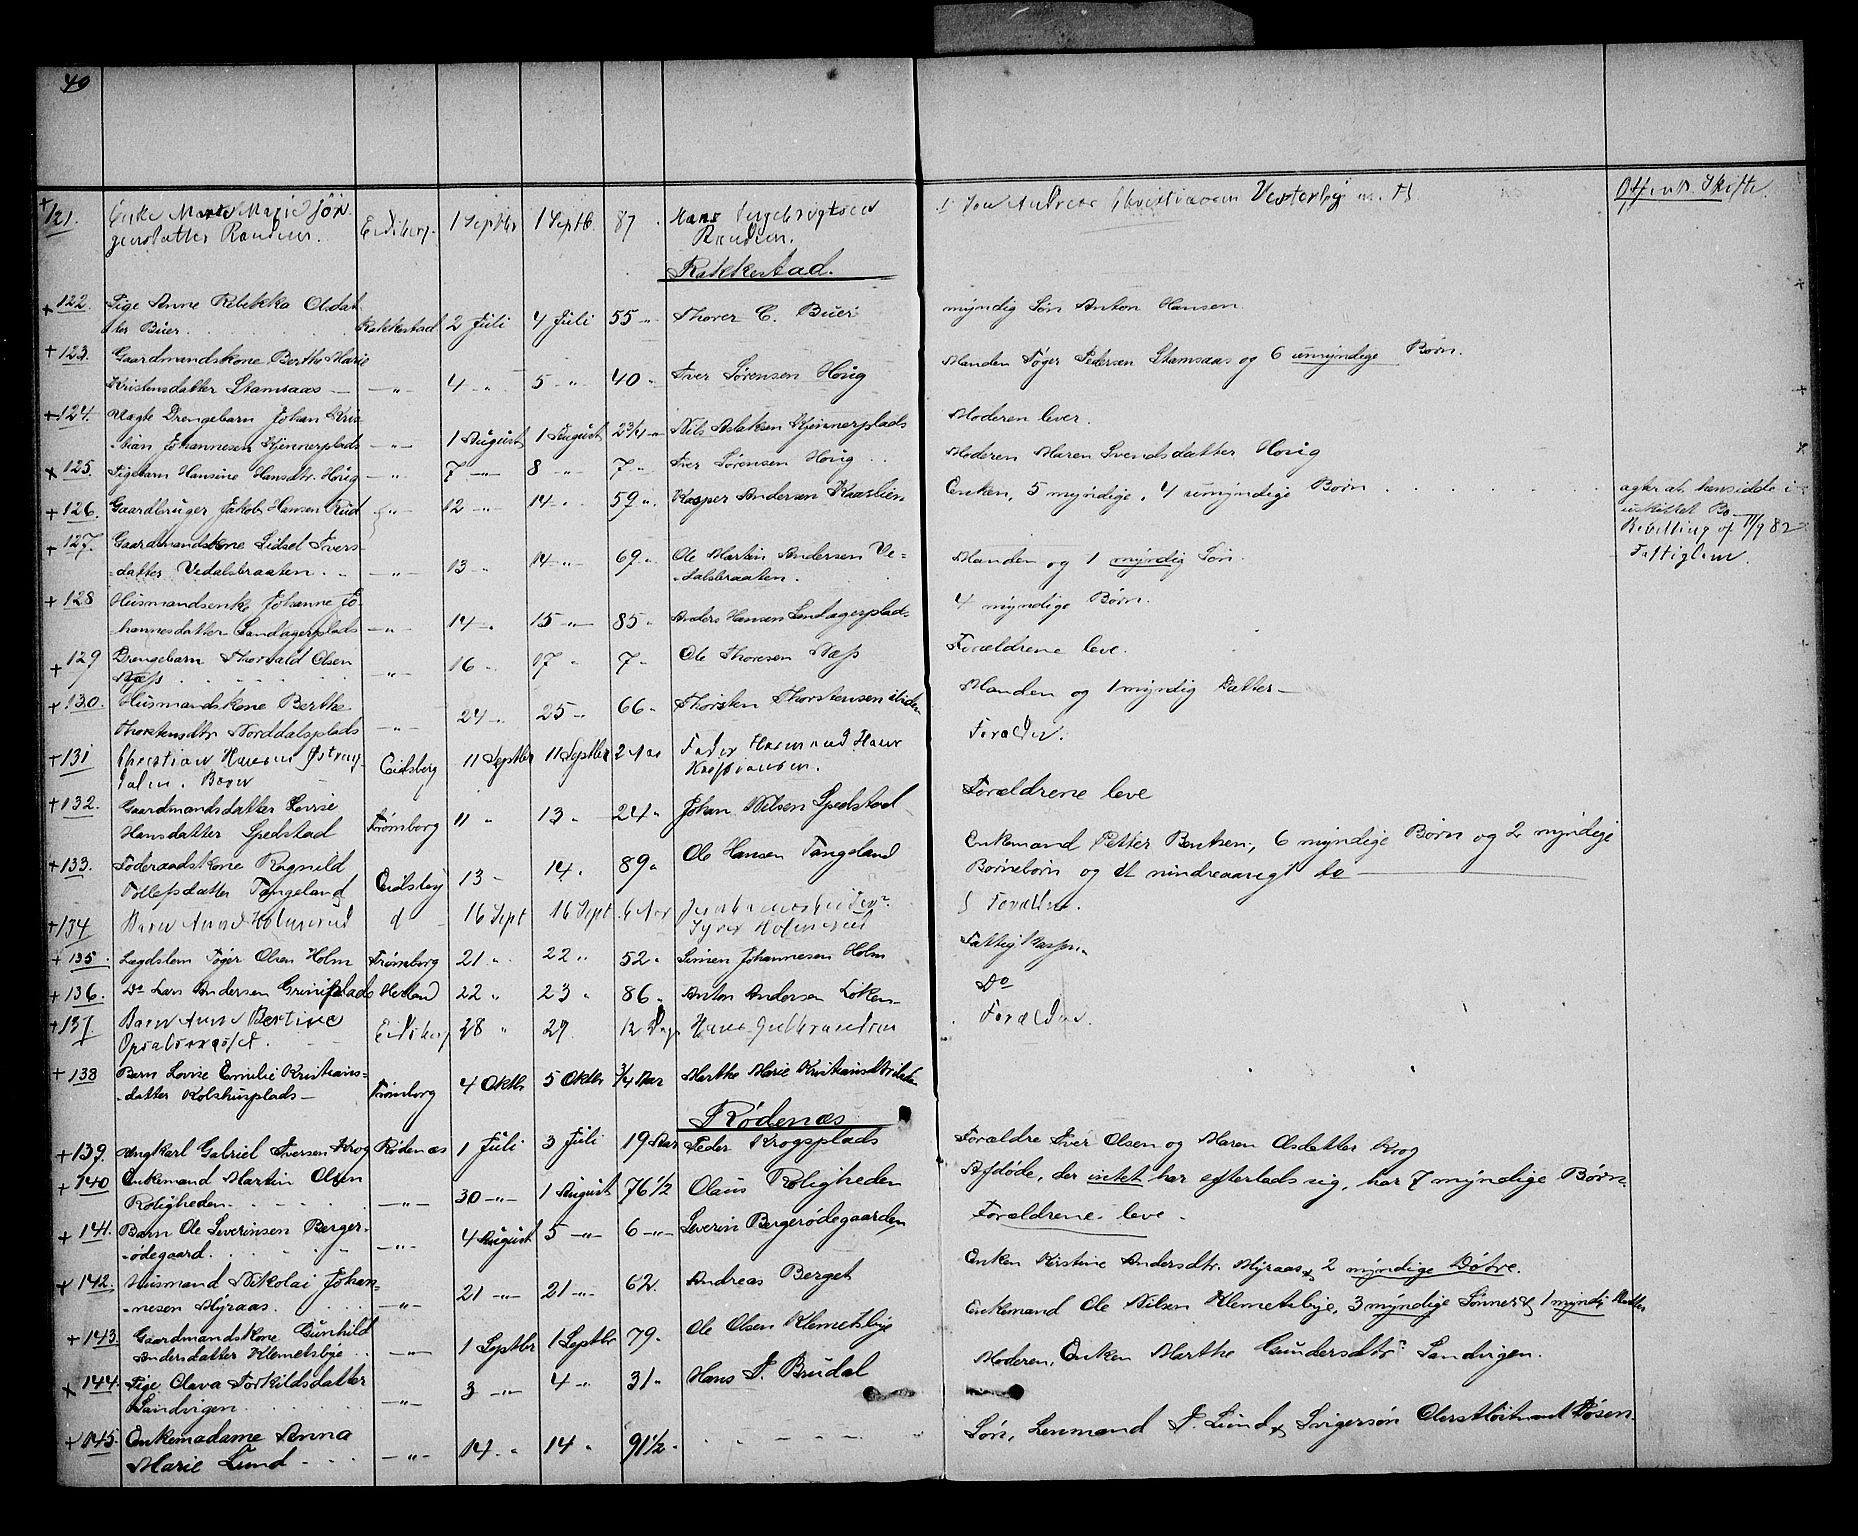 40
121. Enke Marte Marie Jör- Eidsberg. 1 Septbr 1 Septb. 87 Hans Ingebrigtsen Andreas Christiansen Vesterby Offentl. Skifte
gensdatter
Rakkestad.
122. Pige Anne Rebekka Olsdat- myndig Søn Anton Hansen
ter Buer. Rakkestad 2 Juli 4 Juli 55 " Thorer C. Buer
123. Gaardmandskone Berthe Marie Manden Tøger Pedersen Stamsaas og 6 umyndige Børn.
Kristensdatter Stamsaas — " — 4 " 5 " 40 " Iver Sørensen Høug
124. Uægte Drengebarn Johan Kris- Moderen lever.
-tian Johannesen Kjennerplads — " — 1 August 1 August 2 3/4 " Nils Aslaksen Kjennerplads
125. Pigebarn Hansine Hansdtr. Høug — " 7 — " — 8 " 7 " Iver Sørensen Houg Moderen Maren Svendsdatter Houg
126. Gaardbruger Jakob Hansen Rud — " 12 — " — 14 " 59 " Kasper Andersen Enken, 5 myndige, 4 umyndige Børn agter at hensidde i
uskiftet Bo
Bevilling af 11/9 82
127. Gaardmandskone Lisbet Ivers- Fattiglem.
-datter Vedalsbraaten. — " — 13 " 14 " 69 " Ole Martin Andersen Ve- Manden og 1 myndig Søn.
-dalsbraaten.
128 Husmandsenke Johanne Jo- 4 myndige Børn.
hannesdatter Sandagerplads — " — 14 " 15 " 85 " Anders Hansen Sandagerplads
129 Drengebarn Thorvald Olsen Forældrene leve.
Næss — " — 16 " 17 " 7 " Ole Thoresen Næss
130. Husmandskone Berthe Manden og 1 myndig Datter —
Thorstensdtr Norddalsplads — " — 24 " 25 " 66 " Thorsten Thorstensen
131 Christian Hansen Eidsberg 11 Septbr 11 Septbr 2 Aar Fader Husmand Hans Forældre.
dalen. Barn Kristiansen.
132. Gaardmandsdatter Lovise Forældrene leve
Hansdatter Spedstad Trømborg 11 " 13 " 24 " Johan Nilsen Spedstad
133. Føderaadskone Ragnild Eidsberg 13 " 14 " 89 " Ole Hansen Tangeland Enkemand Petter Bentsen, 6 myndige Børn og 2 myndige
Tollefsdatter Tangeland Børnebørn og et mindreaarigt do
134 Barn Anne d 16 Sept 16 Sept 6 Aar Forældre.
135. Lægdslem Tøger Olsen Holm Trømborg 21 " 22 " 52 " Simen Johannesen Holm Fattigkassen
136. Do Lars Andersen Grimsplads Herland 22 " 23 " 86 " Anton Andersen Løken Do
137 Barn Anne Bertine Eidsberg 28 " 29. 12 Dage Hans Gulbrandsen Forældre.
138 Barn Lovise Emilie Kristians-
-datter Kolshusplads — Trømborg 4 Oktbr 5 Oktbr 3/4 Aar Marthe Marie
Rødenæs
139. Ungkarl Gabriel Iversen Krog Rødenæs 1 Juli 3 Juli 19 Aar Peder Krogsplads Forældre Iver Olsen og Maren Olsdatter Krog
140 Enkemand Martin Olsen Afdøde, der intet har efterladt sig, har 7 myndige Børn
Roligheden — " — 30 — " — 1 August 76 1/2 Olaus Roligheden
141. Barn Ole Severinsen Berger- Forældrene leve
-ødegaard. — " — 4 August 5 — " — 6 — " — Severin Bergerødegaarden
142. Husmand Nikolai Johan- Enken Kirstine Andersdtr. Myraas & 2 myndige Døtre.
-nesen Myraas. — " — 21 — " — 21 — " — 62. Andreas Berget
143. Gaardmandskone Gunhild Enkemand Ole Nilsen Klemetsbye, 3 myndige Sønner & 1 myndig Datter
Andersdatter Klemetsbye — " — 1 Septbr 1 Septbr 79. Ole Olsen Klemetsbye
144. Pige Olava Torkildsdatter Moderen, Enken Marthe Gundersdtr Sandvigen.
Sandvigen — " — 3 — " — 4 " 31 " Hans P. Brudal
145. Enkemadame Anna Søn, Lensmand P. Lund & Svigersøn Oberstløitnant Røsen
Marie Lund — " — 14 " 14 " 91 1/2 "